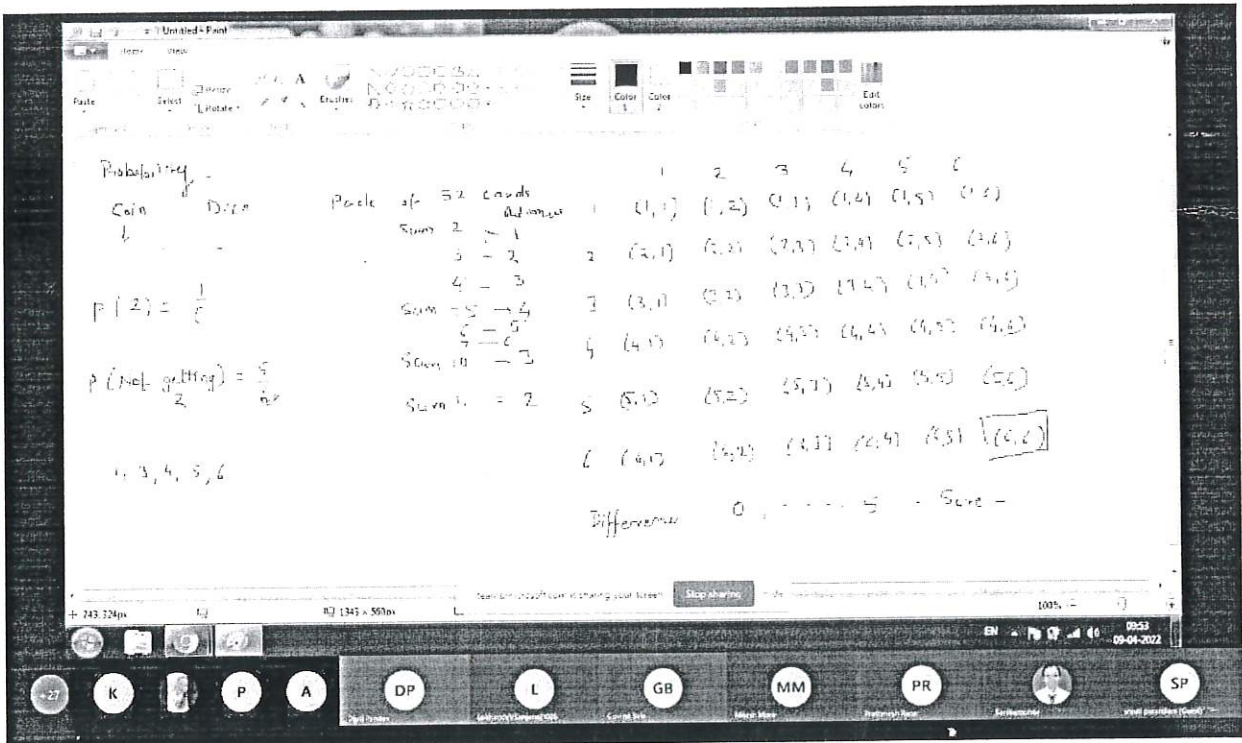 Untitled - Paint
Home View
Paste
Select
Resize
Rotate
A
Brushes
Size
Color 1
Color 2
Edit colors
Probability -
Coin Dice
P(2) = 1/6
P(Not getting 2) = 5/6
1, 3, 4, 5, 6
Pack of 52 cards
Sum 2 - 1
3 - 2
4 - 3
Sum - 5 → 4
6 - 5
7 - 6
Sum 10 - 3
Sum 11 = 2
1 2 3 4 5 6
1 (1,1) (1,2) (1,3) (1,4) (1,5) (1,6)
2 (2,1) (2,2) (2,3) (2,4) (2,5) (2,6)
3 (3,1) (3,2) (3,3) (3,4) (3,5) (3,6)
4 (4,1) (4,2) (4,3) (4,4) (4,5) (4,6)
5 (5,1) (5,2) (5,3) (5,4) (5,5) (5,6)
6 (6,1) (6,2) (6,3) (6,4) (6,5) (6,6)
Difference 0, - - - - 5 - Sure -
is sharing your screen.
Stop sharing
243, 324px
1343 × 560px
100%
EN
09:53
09-04-2022
+27
K
P
A
DP
L
GB
MM
PR
SP